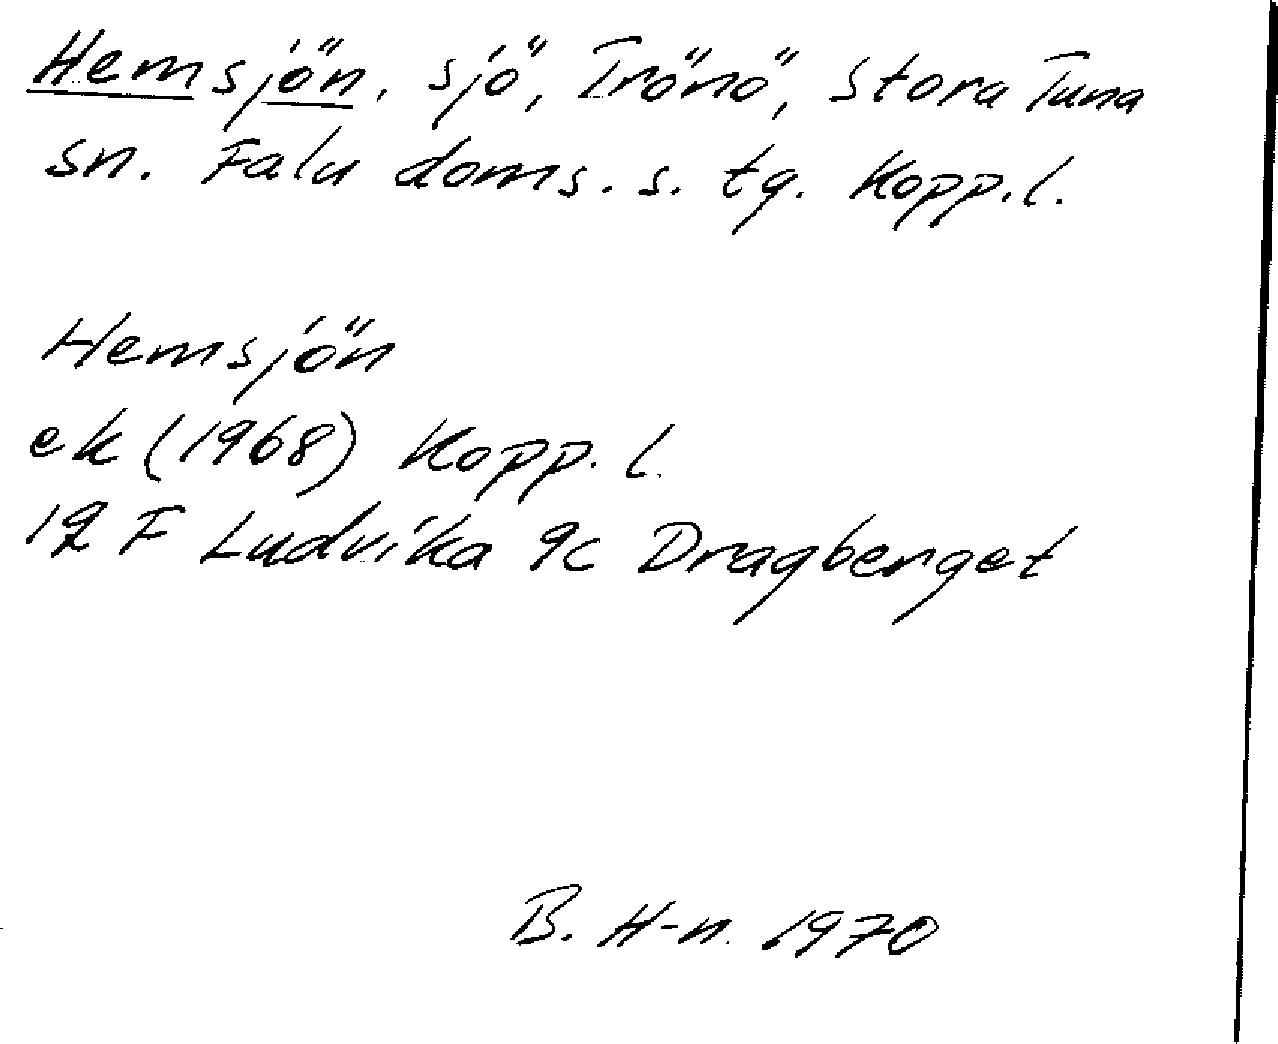 Hemsjön, sjö, Trönö, Stora Tuna
sn. Falu doms. s. tg. Kopp.l.
Hemsjön
ek (1968) Kopp. l.
12 F Ludvika 9c Dragberget
B. H-n. 1970